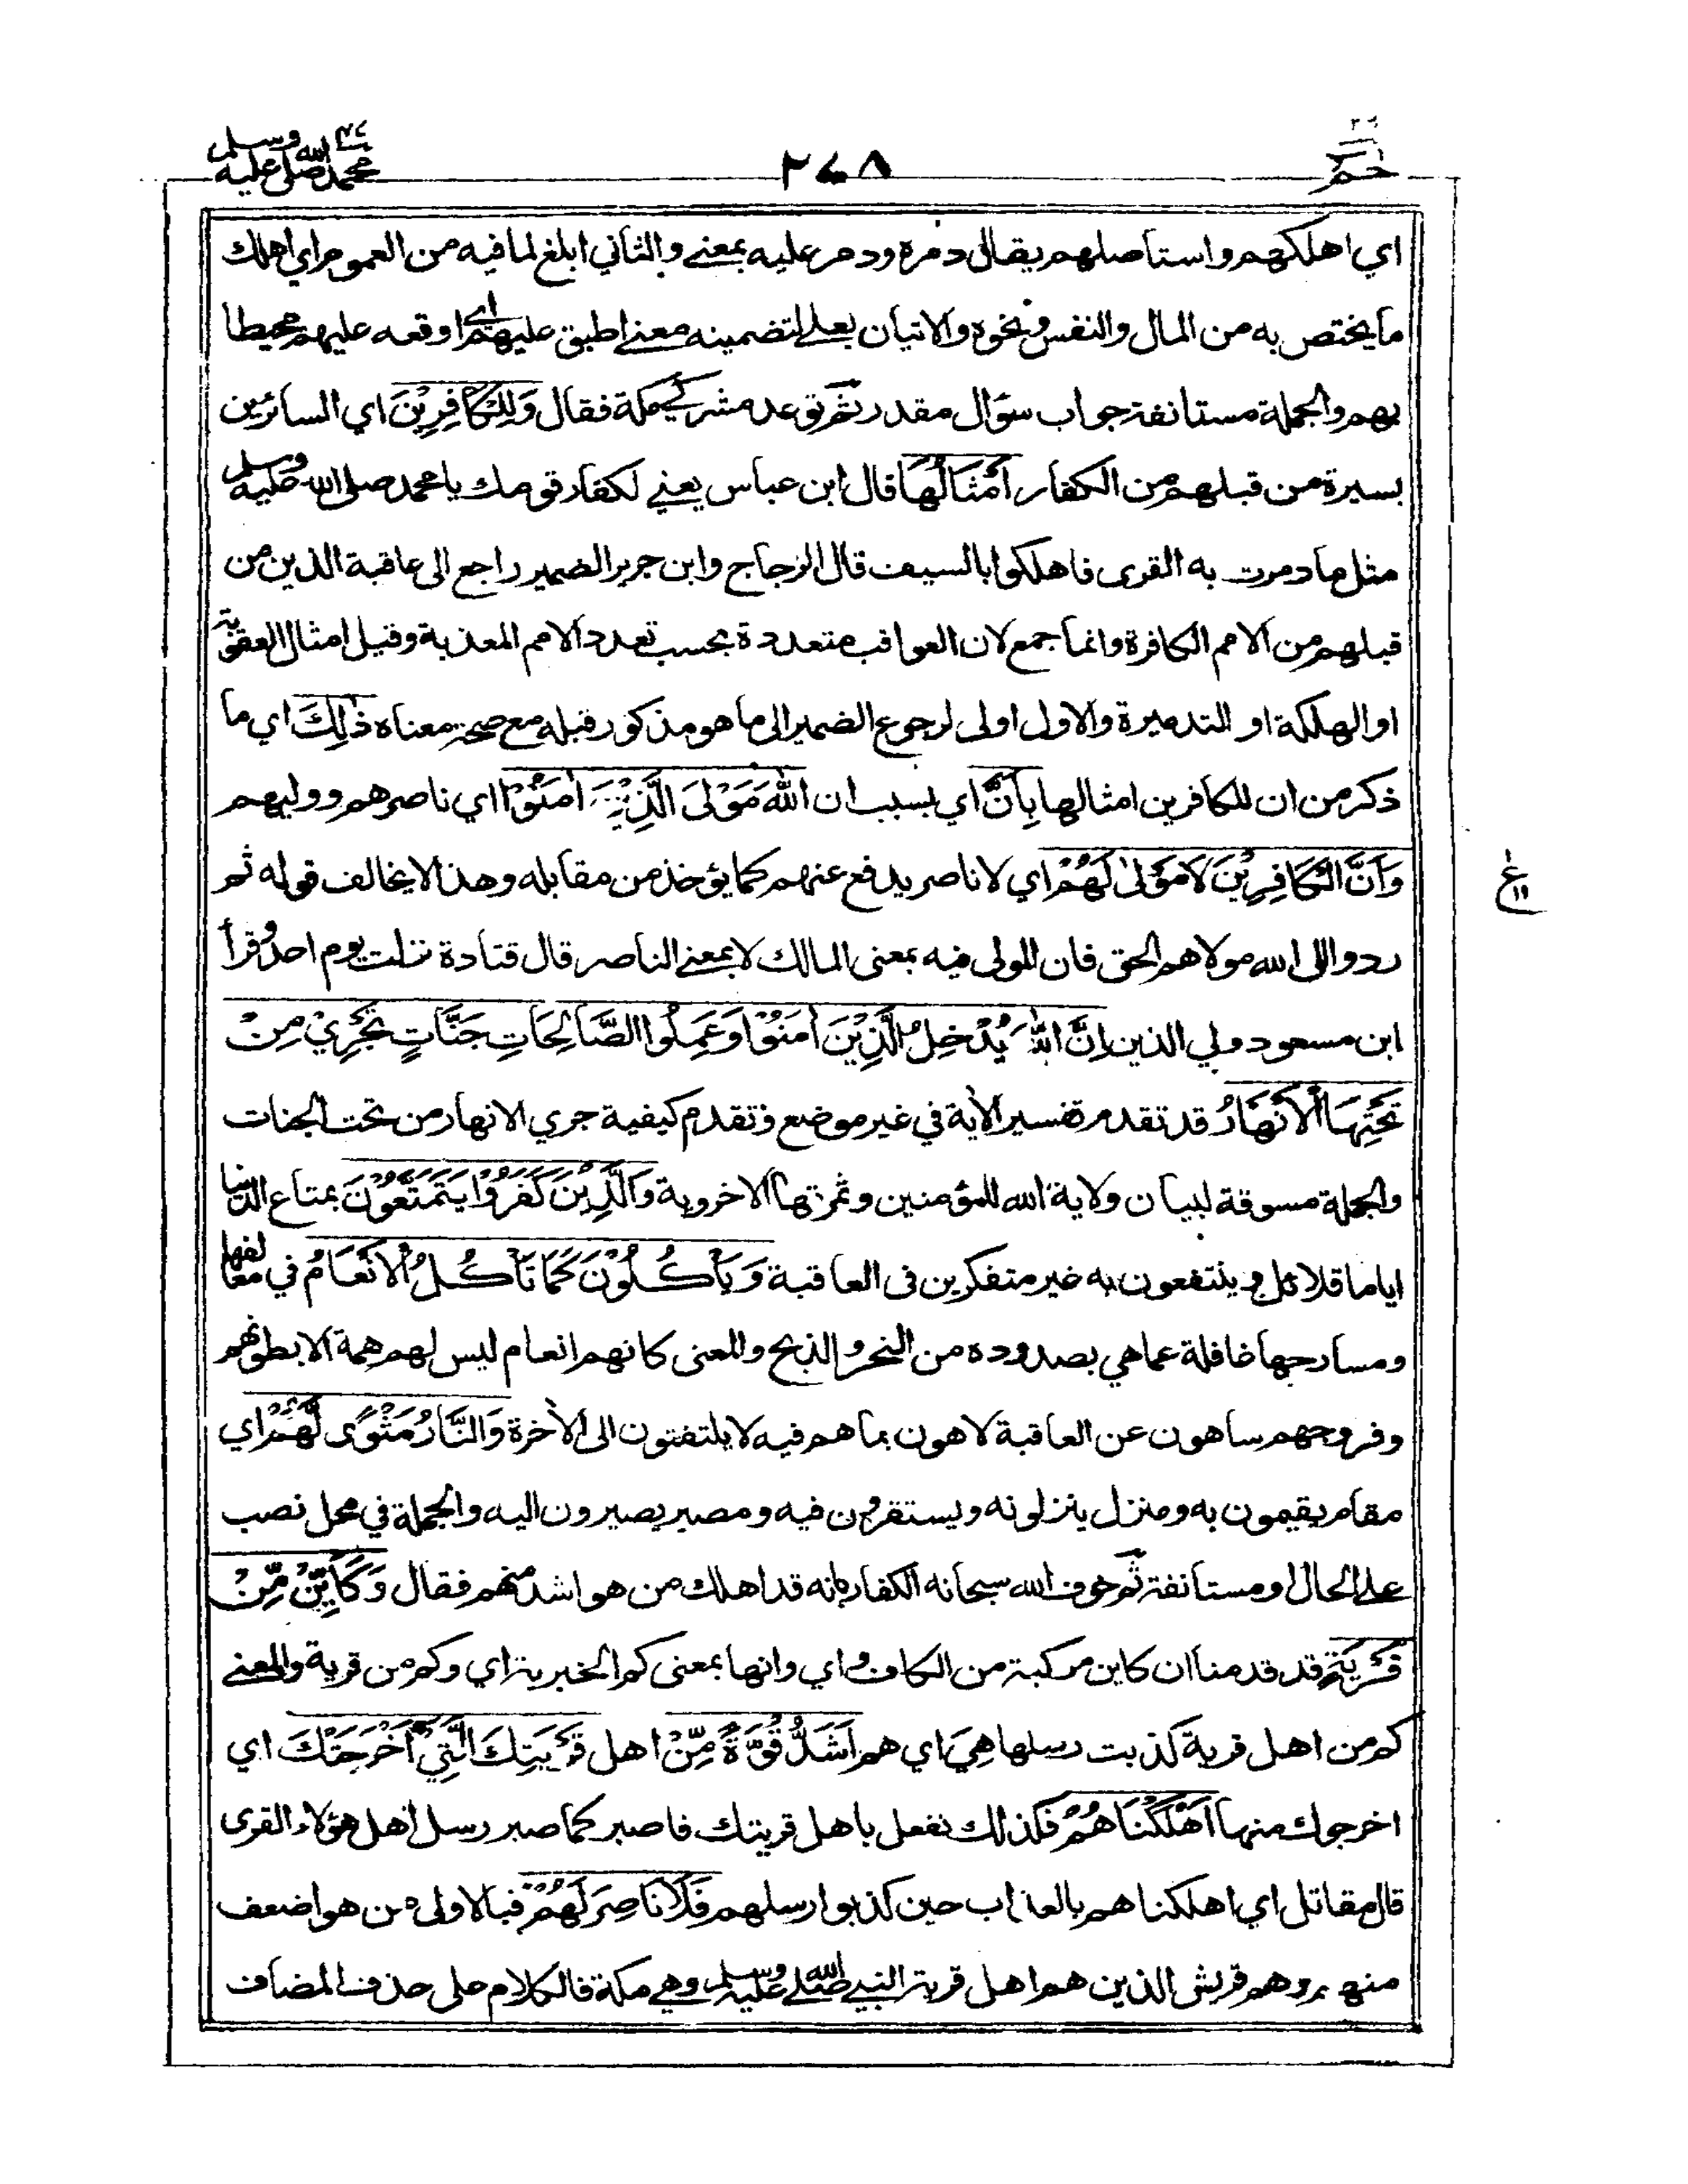 حم
٢٤٨
محمد صلى الله عليه وسلم
اي اهلكهم واستاصلهم يقال دمره ودمر عليه بمعنے والثاني ابلغ لما فيه من العموم اي اهلك
ما يختص به من المال والنفس ونحوه والاتيان بعلے لتضمينه معنے اطبق عليهم اي اوقعه عليهم محيطا
بهم والجملة مستانفة جواب سؤال مقدر ثم توعد مشركي مكة فقال وَلِلْكَافِرِيْنَ اي السائرين
بسيرة من قبلهم من الكفار اَمْثَالُهَا قال ابن عباس يعني لكفار قومك يا محمد صلى الله عليه وسلم
مثل ما دمرت به القرى فاهلكوا بالسيف قال الزجاج وابن جرير الضمير راجع الى عاقبة الذين من
قبلهم من الامم الكافرة وانما جمع لان العواقب متعددة بحسب تعدد الامم المعذبة وقيل امثال العقوبة
او الهلكة او التدميرة والاول اولى لرجوع الضمير الى ما هو مذكور قبله مع صحة معناه ذٰلِكَ اي ما
ذكر من ان للكافرين امثالها بِاَنَّ اي بسبب ان اللّٰهَ مَوْلَى الَّذِيْنَ اٰمَنُوْا اي ناصرهم ووليهم
وَاَنَّ الْكَافِرِيْنَ لَا مَوْلٰى لَهُمْ اي لا ناصر يدفع عنهم كما يؤخذ من مقابله وهذا لا يخالف قوله ثم
ردوا الى الله مولاهم الحق فان المولى فيه بمعنى المالك لا بمعنے الناصر قال قتادة نزلت يوم احد وقرأ
ابن مسعود ولي الذين اِنَّ اللّٰهَ يُدْخِلُ الَّذِيْنَ اٰمَنُوْا وَعَمِلُوا الصَّالِحَاتِ جَنَّاتٍ تَجْرِيْ مِنْ
تَحْتِهَا الْاَنْهَارُ قد تقدم تفسير الاٰية في غير موضع وتقدم كيفية جري الانهار من تحت الجنات
والجملة مسوقة لبيان ولاية الله للمؤمنين وثمرتها الاخروية وَالَّذِيْنَ كَفَرُوْا يَتَمَتَّعُوْنَ بمتاع الدنيا
اياما قلائل وينتفعون به غير متفكرين فى العاقبة وَيَاْكُلُوْنَ كَمَا تَاْكُلُ الْاَنْعَامُ في معالفها
ومسارحها غافلة عما هي بصدوده من النحر والذبح والمعنى كانهم انعام ليس لهم همة الا بطونهم
وفروجهم ساهون عن العاقبة لاهون بما هم فيه لا يلتفتون الى الاٰخرة وَالنَّارُ مَثْوًى لَّهُمْ اي
مقام يقيمون به ومنزل ينزلونه ويستقرون فيه ومصير يصيرون اليه والجملة في محل نصب
على الحال او مستانفة ثم خوف الله سبحانه الكفار بانه قد اهلك من هو اشد منهم فقال وَكَاَيِّنْ مِّنْ
قَرْيَةٍ قد قدمنا ان كاين مركبة من الكاف واي وانها بمعنى كم الخبرية اي وكم من قرية والمعنے
كم من اهل قرية كذبت رسلها هِيَ اي هم اَشَدُّ قُوَّةً مِّنْ اهل قَرْيَتِكَ الَّتِيْ اَخْرَجَتْكَ اي
اخرجوك منها اَهْلَكْنَاهُمْ فكذلك نفعل باهل قريتك فاصبر كما صبر رسل اهل هؤلاء القرى
قال مقاتل اي اهلكناهم بالعذاب حين كذبوا رسلهم فَلَا نَاصِرَ لَهُمْ فبالاولى من هو اضعف
منهم وهم قريش الذين هم اهل قرية النبي صلى الله عليه وسلم وهي مكة فالكلام على حذف المضاف
ع
١١